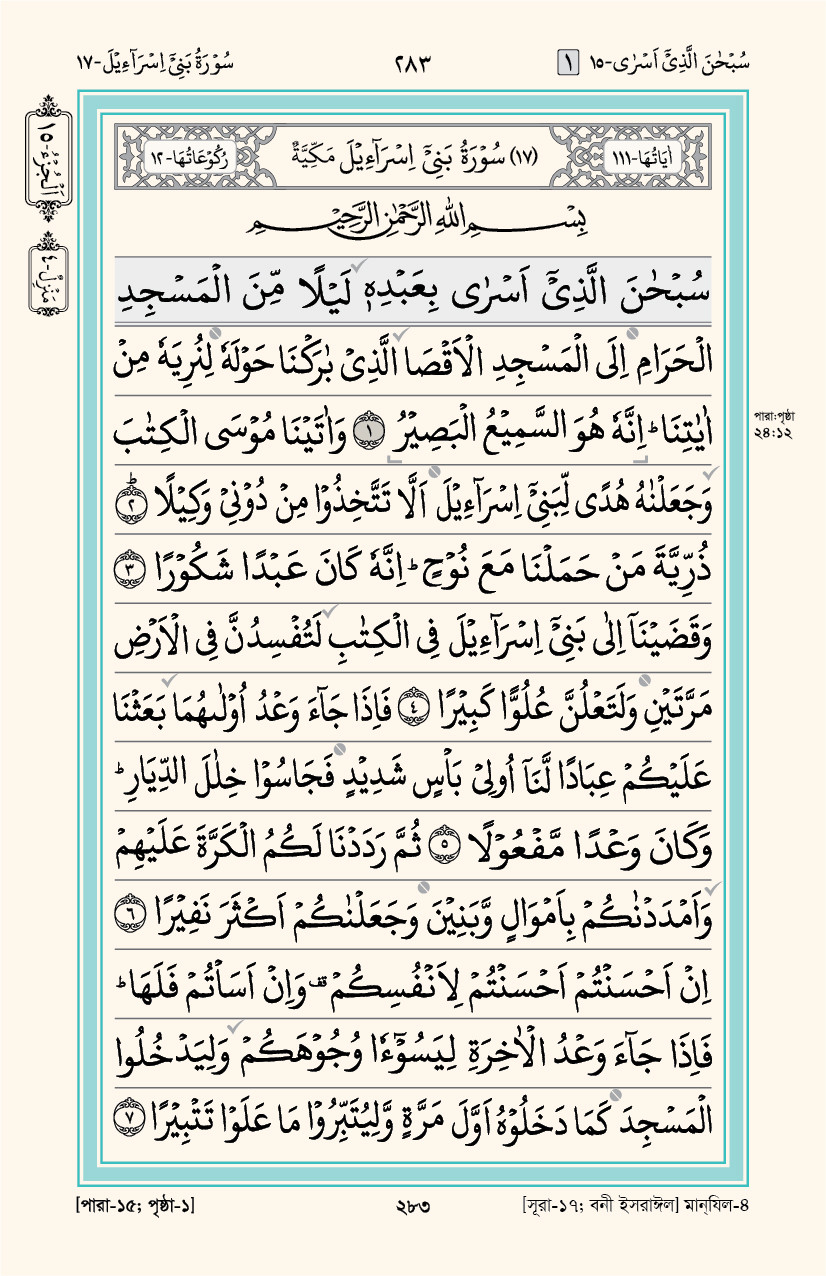 سُبْحٰنَ الَّذِيْۤ اَسْرٰى-١٥ ١
٢٨٣
سُوْرَةُ بَنِيْۤ اِسْرَآءِيْلَ-١٧
اَلْجُزْءُ-١٥
مَنْزِلْ-٤
اٰيَاتُهَا-١١١
(١٧) سُوْرَةُ بَنِيْۤ اِسْرَآءِيْلَ مَكِّيَّةٌ
رُكُوْعَاتُهَا-١٢
بِسْمِ اللهِ الرَّحْمٰنِ الرَّحِيْمِ
سُبْحٰنَ الَّذِيْۤ اَسْرٰى بِعَبْدِهٖ لَيْلًا مِّنَ الْمَسْجِدِ
الْحَرَامِ اِلَى الْمَسْجِدِ الْاَقْصَا الَّذِيْ بٰرَكْنَا حَوْلَهٗ لِنُرِيَهٗ مِنْ
اٰيٰتِنَا ؕ اِنَّهٗ هُوَ السَّمِيْعُ الْبَصِيْرُ ﴿١﴾ وَاٰتَيْنَا مُوْسَى الْكِتٰبَ
পারা:পৃষ্ঠা
২৪:১২
وَجَعَلْنٰهُ هُدًى لِّبَنِيْۤ اِسْرَآءِيْلَ اَلَّا تَتَّخِذُوْا مِنْ دُوْنِيْ وَكِيْلًا ﴿٢﴾ؕ
ذُرِّيَّةَ مَنْ حَمَلْنَا مَعَ نُوْحٍ ؕ اِنَّهٗ كَانَ عَبْدًا شَكُوْرًا ﴿٣﴾
وَقَضَيْنَاۤ اِلٰى بَنِيْۤ اِسْرَآءِيْلَ فِى الْكِتٰبِ لَتُفْسِدُنَّ فِى الْاَرْضِ
مَرَّتَيْنِ وَلَتَعْلُنَّ عُلُوًّا كَبِيْرًا ﴿٤﴾ فَاِذَا جَآءَ وَعْدُ اُوْلٰىهُمَا بَعَثْنَا
عَلَيْكُمْ عِبَادًا لَّنَاۤ اُولِيْ بَاْسٍ شَدِيْدٍ فَجَاسُوْا خِلٰلَ الدِّيَارِ ؕ
وَكَانَ وَعْدًا مَّفْعُوْلًا ﴿٥﴾ ثُمَّ رَدَدْنَا لَكُمُ الْكَرَّةَ عَلَيْهِمْ
وَاَمْدَدْنٰكُمْ بِاَمْوَالٍ وَّبَنِيْنَ وَجَعَلْنٰكُمْ اَكْثَرَ نَفِيْرًا ﴿٦﴾
اِنْ اَحْسَنْتُمْ اَحْسَنْتُمْ لِاَنْفُسِكُمْ قف وَاِنْ اَسَاْتُمْ فَلَهَا ؕ
فَاِذَا جَآءَ وَعْدُ الْاٰخِرَةِ لِيَسُوْٓءٗا وُجُوْهَكُمْ وَلِيَدْخُلُوا
الْمَسْجِدَ كَمَا دَخَلُوْهُ اَوَّلَ مَرَّةٍ وَّلِيُتَبِّرُوْا مَا عَلَوْا تَتْبِيْرًا ﴿٧﴾
[পারা-১৫; পৃষ্ঠা-১]
২৮৩
[সূরা-১৭; বনী ইসরাঈল] মান্‌যিল-৪